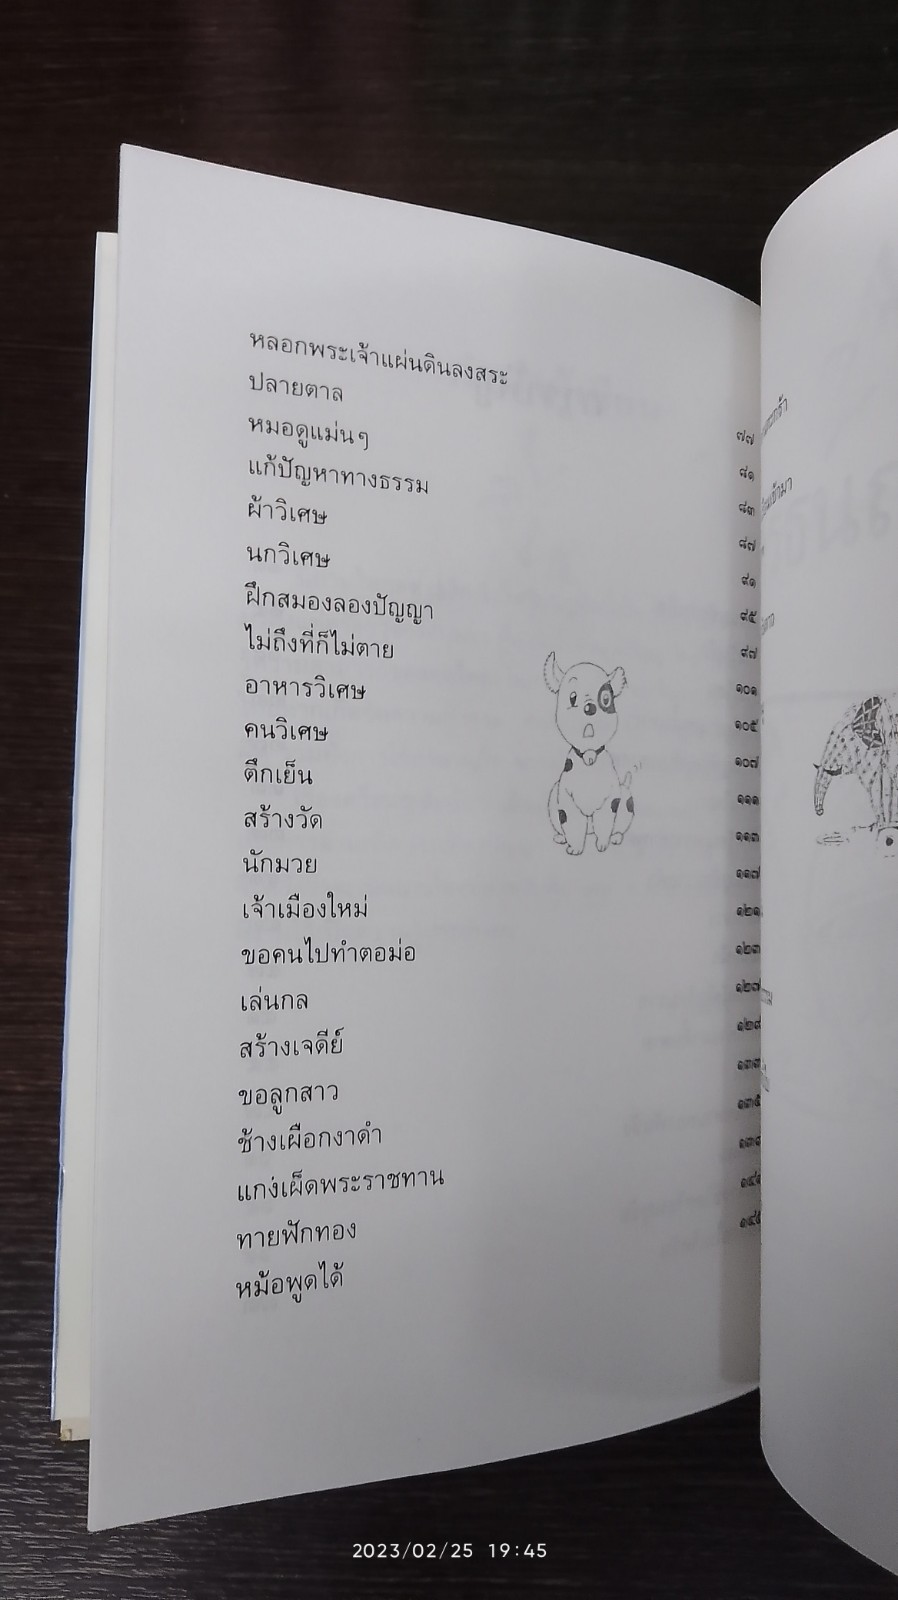 หลอกพระเจ้าแผ่นดินลงสระ ๗๗
ปลายตาล ๘๑
หมอดูแม่นๆ ๘๓
แก้ปัญหาทางธรรม ๘๗
ผ้าวิเศษ ๙๑
นกวิเศษ ๙๕
ฝึกสมองลองปัญญา ๙๗
ไม่ถึงที่ก็ไม่ตาย ๑๐๑
อาหารวิเศษ ๑๐๕
คนวิเศษ ๑๐๗
ตึกเย็น ๑๑๑
สร้างวัด ๑๑๓
นักมวย ๑๑๗
เจ้าเมืองใหม่ ๑๒๑
ขอคนไปทำตอม่อ ๑๒๓
เล่นกล ๑๒๗
สร้างเจดีย์ ๑๒๙
ขอลูกสาว ๑๓๓
ช้างเผือกงาดำ ๑๓๕
แกงเผ็ดพระราชทาน
ทายฟักทอง
หม้อพูดได้
2023/02/25 19:45